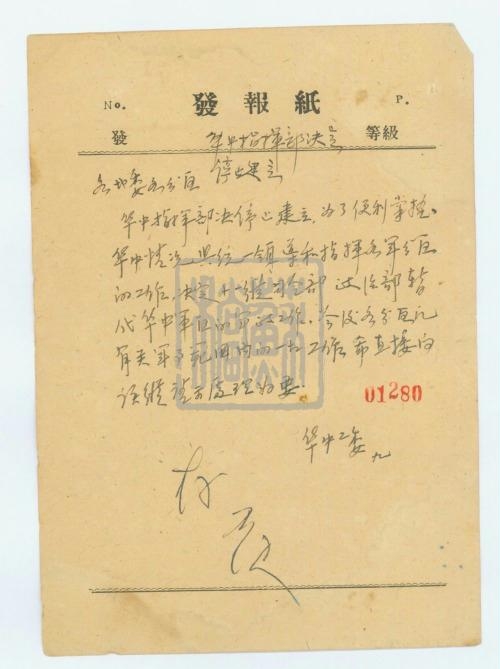 No. 發報紙 P.
發 华中指挥部决定 等級
停止建立
各地委各分区
华中指挥部决停止建立,为了便利掌握
华中情况,统一领导和指挥各军分区
的工作,决定十一纵司令部政治部暂
代华中军区的军政工作,今后各分区凡
有关军事范围内的一切工作,希直接向
该纵请示处理为要.
01280
华中工委
九